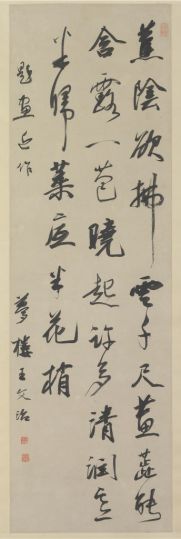 蕉陰欲拂雲千尺蕙蕊能
含露一苞曉起許多清潤意
半歸葉底半花梢
題畫近作
夢樓王文治